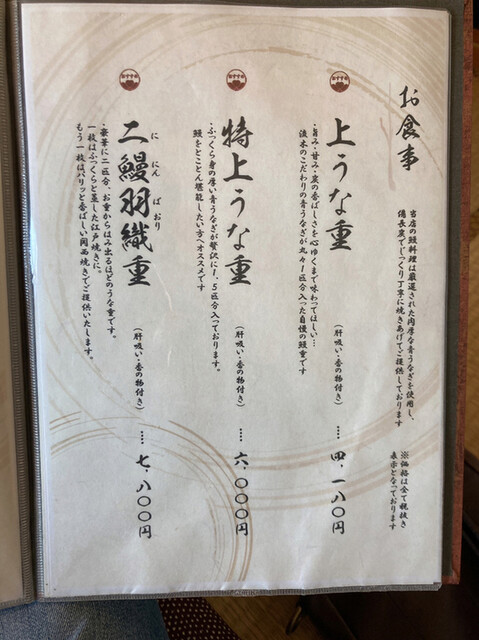 お食事
当店の鰻料理は厳選された肉厚な青うなぎを使用し、
備長炭でじっくり丁寧に焼きあげてご提供しております
※価格は全て税抜き
表示となっております
おすすめ
上うな重
(肝吸い・香の物付き)
…. 四、一八〇円
・旨み・甘み・炭の香ばしさを心ゆくまで味わってほしい…
淡水のこだわりの青うなぎが丸々1匹分入った自慢の鰻重です
おすすめ
特上うな重
(肝吸い・香の物付き)
…. 六、〇〇〇円
・ふっくら身の厚い青うなぎが贅沢に1、5匹分入っております。
鰻をとことん堪能したい方へオススメです
おすすめ
二鰻羽織重
に にん ばおり
(肝吸い・香の物付き)
…. 七、八〇〇円
・豪華に二匹分、お重からはみ出るほどのうな重です。
一枚はふっくらと蒸した江戸焼きに。
もう一枚はパリッと香ばしい関西焼きでご提供いたします。